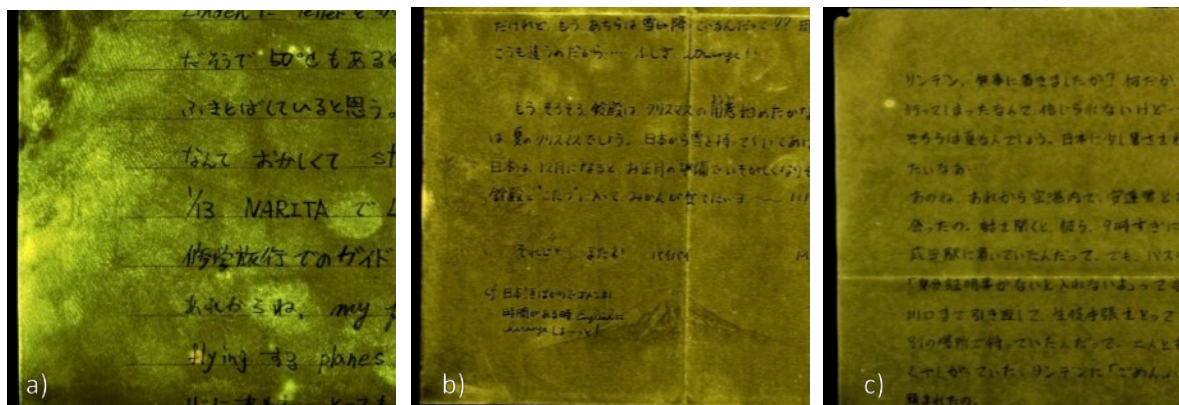 Linden に letter を
だそうで 50℃もある
ふきとばしていると思う。
なんて おかしくて st
1/13 NARITA で L
修学旅行でのガイド
あれからね, my f
flying する planes
a)
だけれど、もう、あちらは雪が降っているんだって!!
こうも違うのだから… ふしぎ strange!!
もうそろそろ 鈴殿は クリスマスの用意始めたかな
は夏のクリスマスでしょう。日本から雪を持って行ってあげ
日本は、12月になると、お正月の準備でいそがしくなり
鈴殿と"こたつ"に入って みかんが食べたいヨ〜〜!!!
それじゃ またね バイバイ M
日本語ばかりでゴメンネ!
時間がある時 Englishに
change しまーっす!
b)
リンデン、無事に着きましたか? 何だか
行ってしまったなんて 信じられないけど…
そちらは夏なんでしょう。日本に少し暑さを
たいなあ
あのね、あれから空港内で、安達君と
会ったの。話を聞くと、彼ら、9時すぎに
成田駅に着いていたんだって。でも、バス
「身分証明書がないと入れないよ」って
川口まで引き返して、生徒手張をとって
別の場所で待っていたんだって。二人とも
くやしがっていた。リンデンに「ごめん」
頼まれたの。
c)